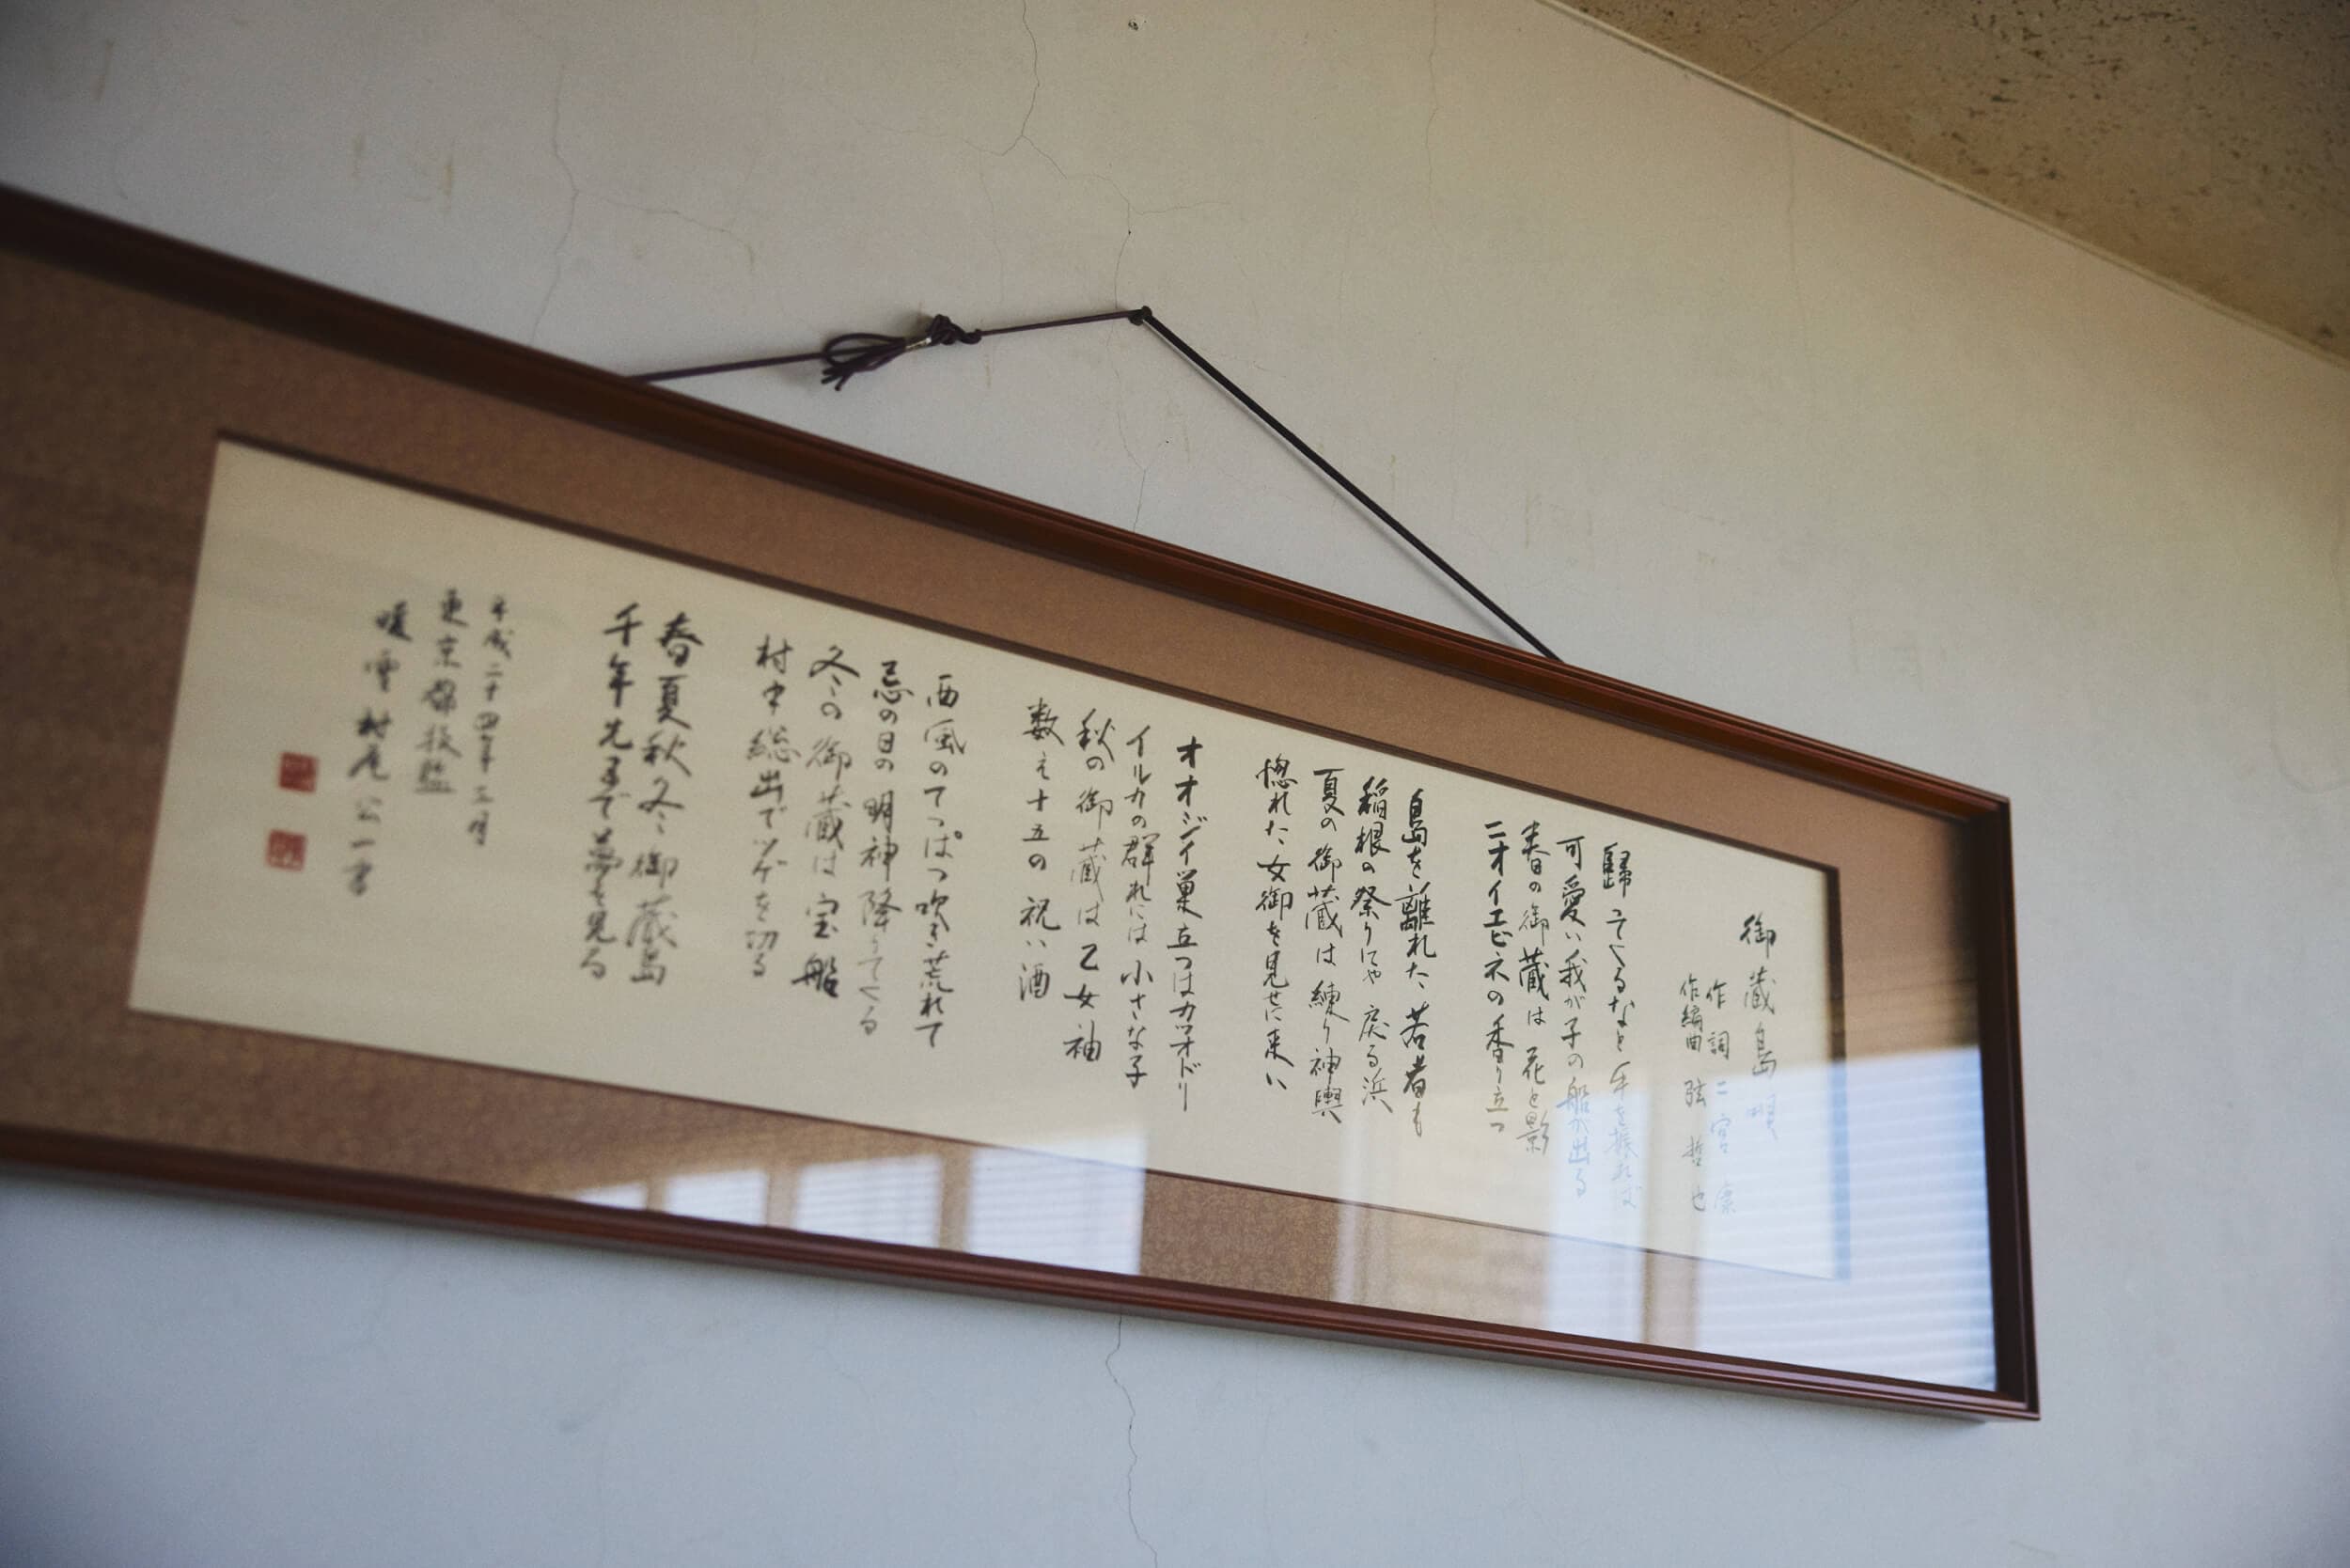 御蔵島唄
作詞 二宮 康
作編曲 弦 哲也
歸ってくるなと手を振れば
可愛い我が子の船が出る
春の御蔵は花と影
ニオイエビネの香り立つ
島を離れた若者も
稲根の祭りにゃ戻る浜
夏の御蔵は練り神輿
惚れた女御を見せに来い
オオジイ巣立つはカツオドリ
イルカの群れには小さな子
秋の御蔵は乙女袖
数え十五の祝い酒
西風のてっぱつ吹き荒れて
忌の日の明神降りてくる
冬の御蔵は宝船
村中総出でツゲを切る
春夏秋冬御蔵島
千年先まで夢を見る
平成二十四年三月
東京都技監
村尾公一書